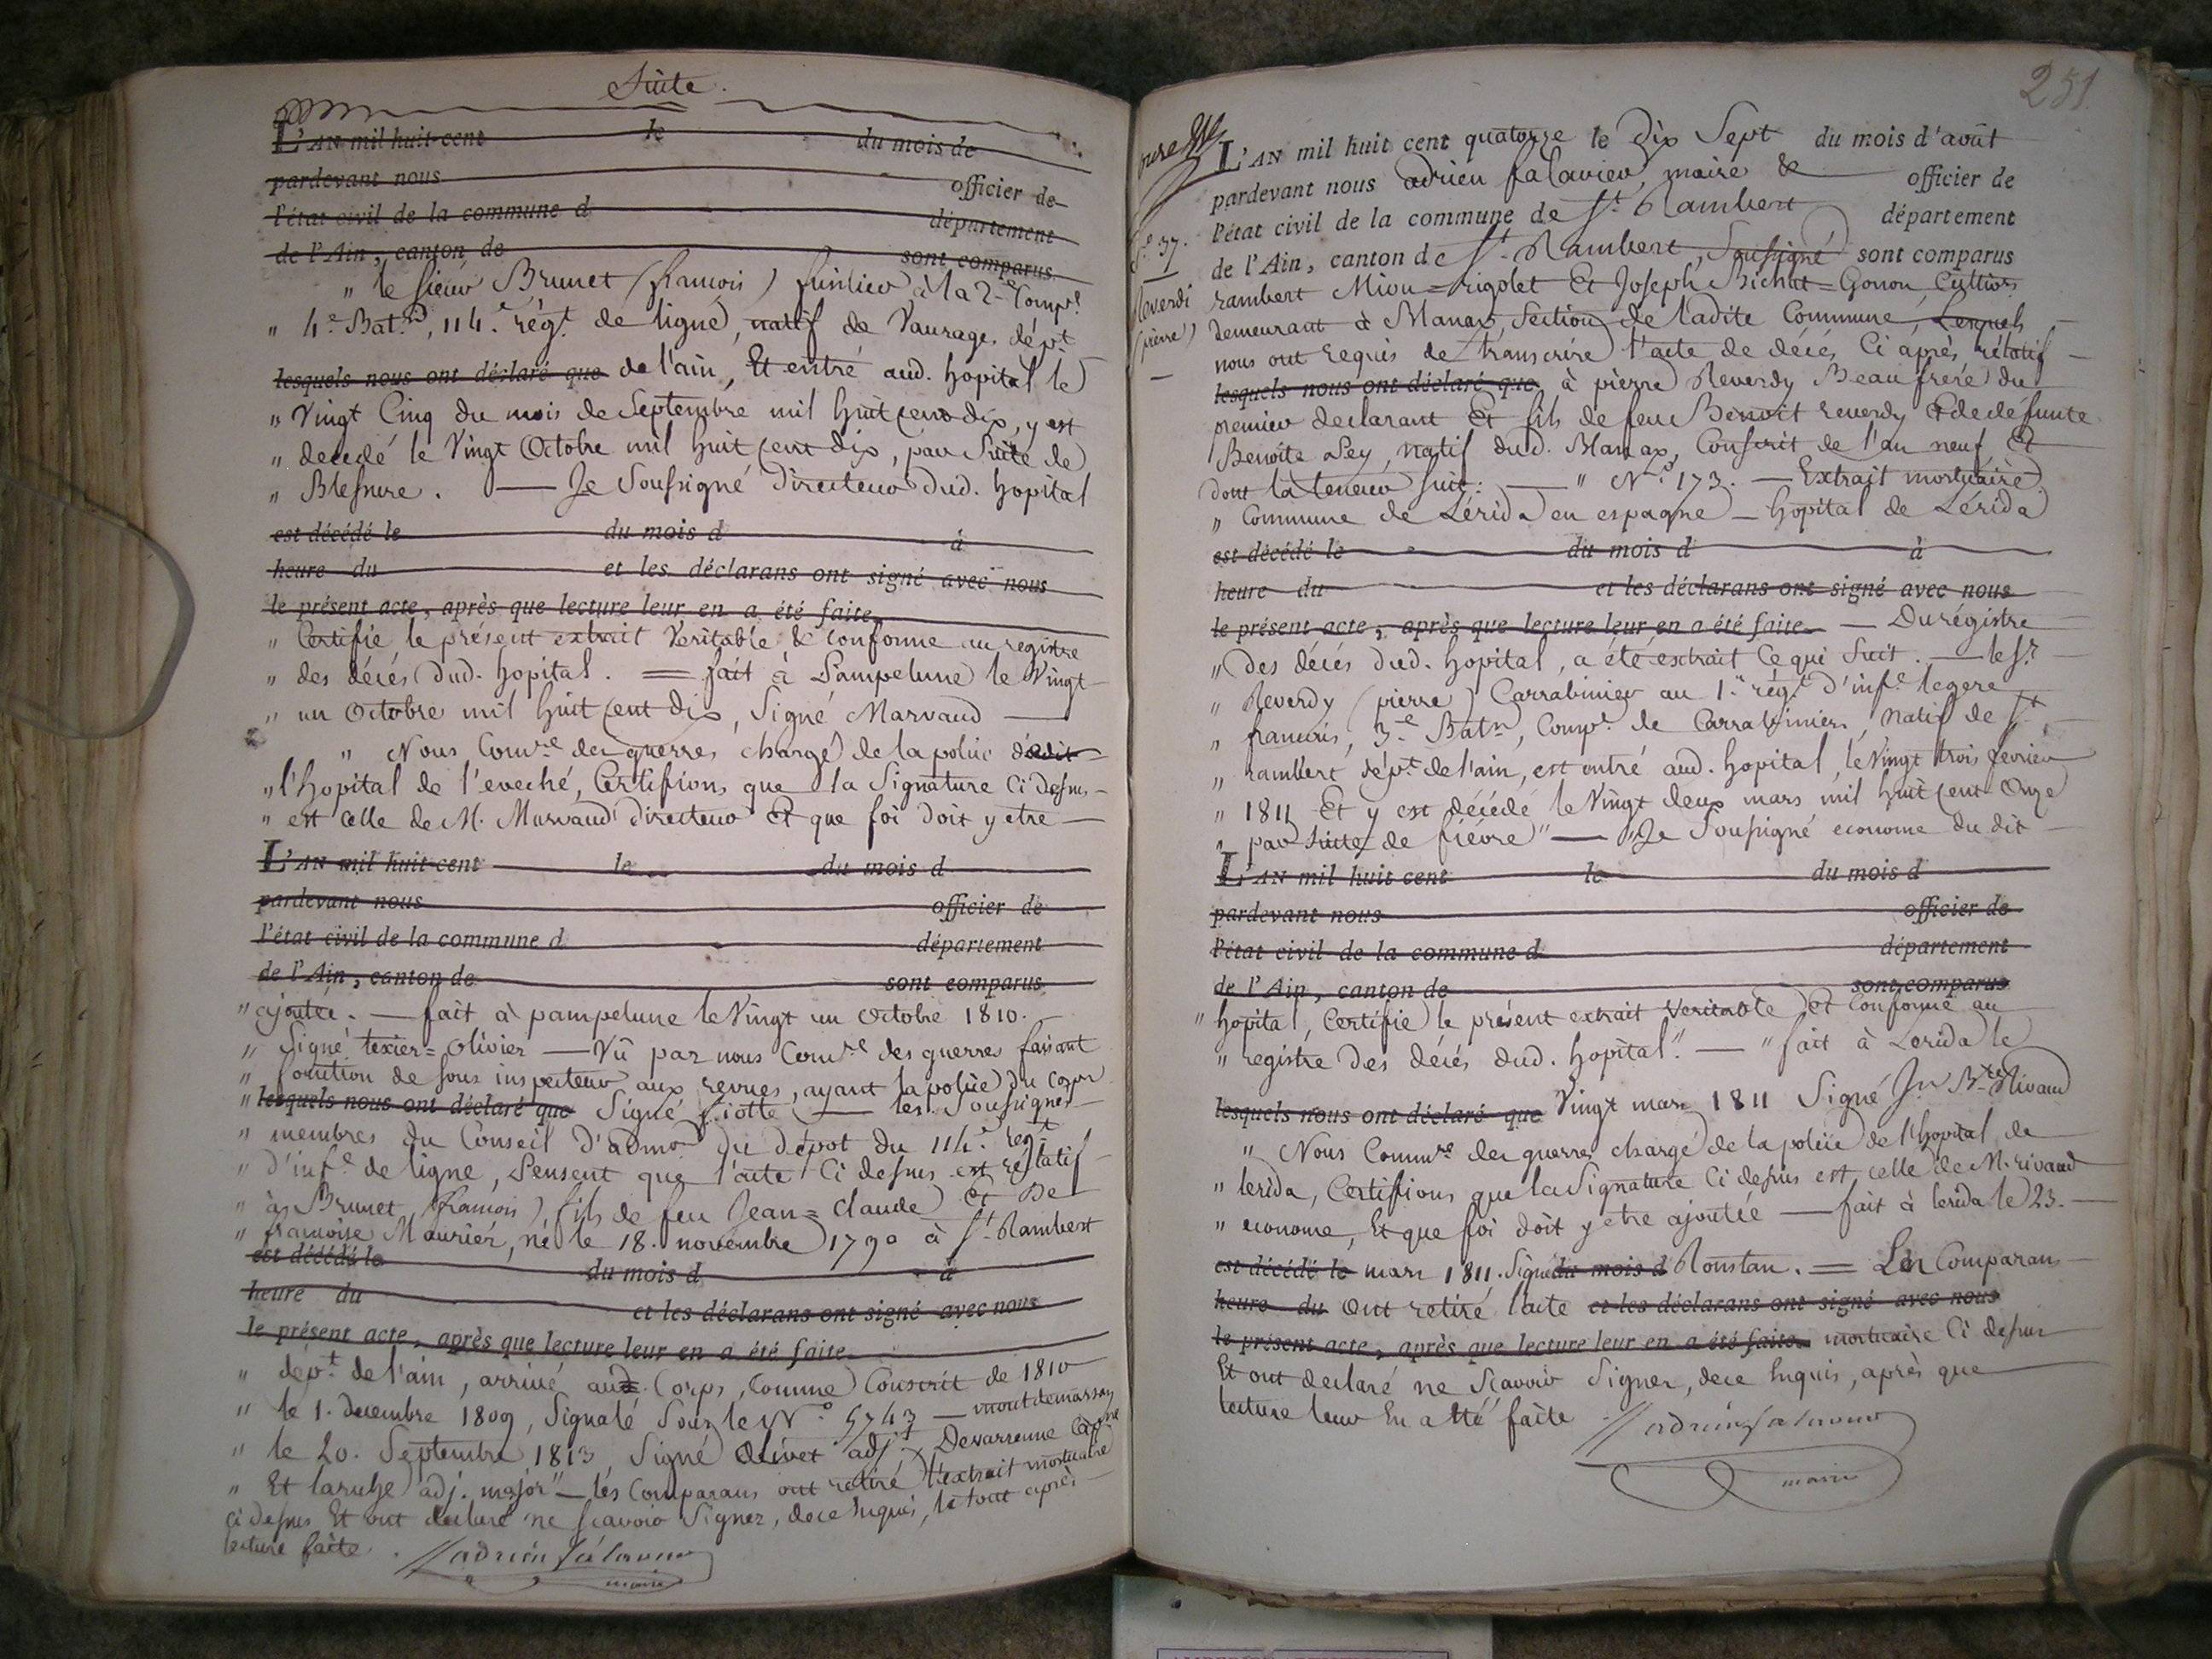 Suite.
L'AN mil huit cent le du mois de
pardevant nous officier de
l'état civil de la commune d département
de l'Ain, canton de sont comparus
" le sieur Brunet (francois) fusilier à la 2e Compe
" 4e Baton, 114e régt de ligne, natif de Vaurage, dépt
lesquels nous ont déclaré que de l'ain, Et entré aud. hopital le
" Vingt Cinq du mois de Septembre mil huit Cent dix, y est
" decedé le Vingt Octobre mil huit Cent dix, par Suite de
" Blessure. — Je Soussigné Directeur dud. hopital
est décédé le du mois d à
heure du et les déclarans ont signé avec nous
le présent acte, après que lecture leur en a été faite
" Certifie le présent extrait Veritable & conforme au registre
" des décés dud. hopital. = fait à Pampelune le Vingt
" un Octobre mil huit Cent dix, Signé Marvaud —
" Nous Comre des guerres chargé de la police
" l'hopital de l'eveché, Certifions que la Signature Ci dessus
" est celle de M. Marvaud directeur Et que foi doit y etre
L'AN mil huit cent le du mois d
pardevant nous officier de
l'état civil de la commune d département
de l'Ain, canton de sont comparus
" ajoutée. — fait à pampelune le Vingt un Octobre 1810.
" Signé texier = Olivier — Vû par nous Comre des guerres faisant
" fonction de sous inspecteur aux revues, ayant la police du Corps
" lesquels nous ont déclaré que Signé — les Soussignés
" membres du Conseil d'admon du dépot du 114e regt
" d'infe de ligne, Pensent que l'acte Ci dessus est rélatif
" à Brunet (francois) fils de feu Jean = Claude Et De
" francoise Maurier, né le 18. novembre 1790 à St Rambert
est décédé le du mois d à
heure du et les déclarans ont signé avec nous
le présent acte, après que lecture leur en a été faite
" dépt de l'ain, arrivé aud. Corps, Comme Conscrit de 1810
" le 1. decembre 1809, Signalé Sous le No 5743 — mont demarsan
" le 20. Septembre 1813 Signé Olivet adj. Devarenne Capne
" Et laruhe adj. major" — les Comparans ont retiré l'extrait mortuaire
Ci dessus Et ont declaré ne scavoir Signer, de ce Enquis, le tout après
lecture faite. adrien falavier
maire
251
L'AN mil huit cent quatorze le Dix Sept du mois d'août
pardevant nous adrien falavier, maire & officier de
l'état civil de la commune de St. Rambert département
de l'Ain, canton de St. Rambert, Soussigné sont comparus
No. 37.
Reverdi
(pierre)
rambert Miou = rigolet Et Joseph Bichat = Gonon Cultivrs
demeurant à Manax, Section de ladite Commune, Lesquels
nous ont requis de transcrire l'acte de décés Ci après rélatif
lesquels nous ont déclaré que à pierre Reverdy Beaufrere du
premier declarant Et fils de feu Benoit reverdy Et de défunte
Benoite Ley, natif dud. Manax, Conscrit de l'an neuf, Et
dont la teneur suit: — " No. 173. — Extrait mortuaire
" Commune de Lérida en espagne — hopital de Lérida
est décédé le du mois d à
heure du et les déclarans ont signé avec nous
le présent acte, après que lecture leur en a été faite. — Du régistre
" Des décés dud. hopital, a été extrait Ce qui Suit. — le Sr
" Reverdy (pierre) Carrabinier au 1er régt d'infe legere
" francais, 3e Baton, Compe de Carrabiniers, natif de St
" rambert dépt de l'ain, est entré aud. hopital, le Vingt trois fevrier
" 1811 Et y est décédé le Vingt deux mars mil huit Cent Onze
" par Suite de fiévre" — "Je Soussigné econome du dit
L'AN mil huit cent le du mois d
pardevant nous officier de
l'état civil de la commune d département
de l'Ain, canton de sont comparus
" hopital, Certifie le présent extrait Veritable Et Conforme au
" registre des décés dud. hopital." — "fait à Lerida le
lesquels nous ont déclaré que Vingt mars 1811 Signé Jn Bte Rivaud
" Nous Commre des guerres chargé de la police de l'hopital de
" lerida, Certifions que la Signature Ci dessus est celle de M. rivaud
" econome, Et que foi doit y etre ajoutée — fait à lerida le 23.
est décédé le mars 1811. Signé du mois d Roustan. = Les Comparans
heure du Ont retiré l'acte et les déclarans ont signé avec nous
le présent acte, après que lecture leur en a été faite. mortuaire Ci dessus
Et ont declaré ne Scavoir Signer, de ce Enquis, après que
lecture leur En a été faite adrien falavier
maire